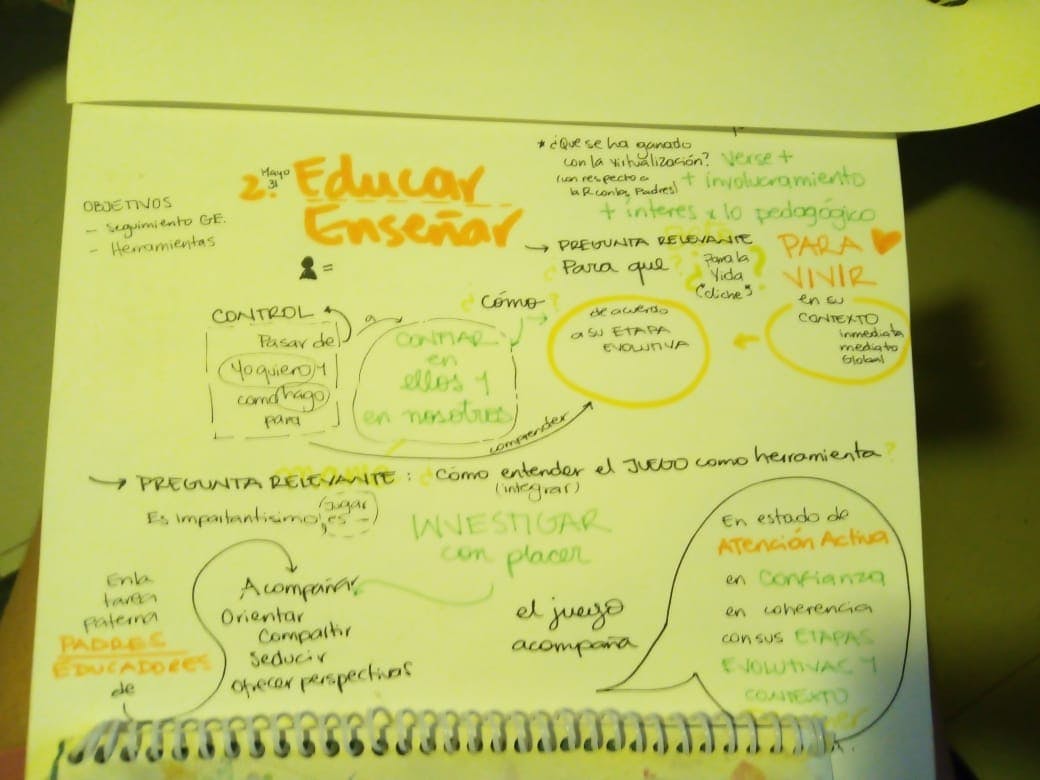 * ¿Que se ha ganado
con la virtualización?
(con respecto a
la R. con los Padres)
verse +
+ involucramiento
+ interes x lo pedagógico
2. Mayo
31
Educar
Enseñar
OBJETIVOS
- Seguimiento GE.
- Herramientas
=
→ PREGUNTA RELEVANTE
Para que ?
¿Para la
Vida
("cliche") ?
PARA
VIVIR
en su
CONTEXTO
inmediata
mediato
Global
¿Cómo?
de acuerdo
a su ETAPA
EVOLUTIVA
CONTROL
Pasar de
Yo quiero y
como hago
para
a
CONFIAR
en
ellos y
en nosotros
comprender
→ PREGUNTA RELEVANTE: ¿Cómo entender el JUEGO como herramienta?
(integrar)
Es importantísimo, es -
Jugar
INVESTIGAR
con placer
En la
tarea
paterna
PADRES
EDUCADORES
de
Acompañar
Orientar
Compartir
Seducir
Ofrecer perspectivas
el juego
acompaña
En estado de
ATENCIÓN ACTIVA
en CONFIANZA
en coherencia
con sus ETAPAS
EVOLUTIVAS Y
CONTEXTO